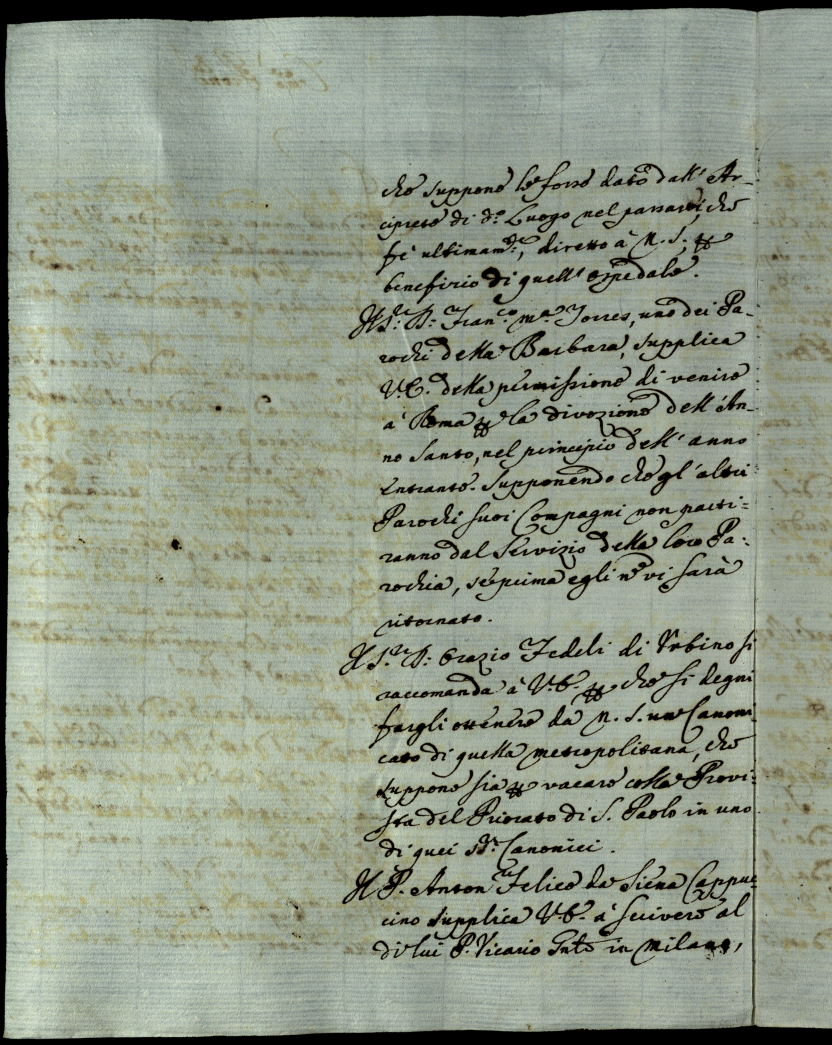 che suppone le fosse dato dall' Ar-
ciprete di d.º Luogo nel passare, che
fè ultimam.te, diretto à N. S. per
benefizio di quell' ospedale.
Il S.r D. Fran.co M.a Torres, uno dei Pa-
rochi della Barbara, supplica
V.E. della permissione di venire
à Roma per la divozione dell' An-
no Santo, nel principio dell' anno
entrante. Supponendo che gl' altri
Parochi suoi Compagni non parti-
ranno dal Servizio della loro Pa-
rochia, se prima egli nō vi sarà
ritornato.
Il S.r D. Orazio Fedeli di Urbino si
raccomanda à V.E. per che si degni
fargli ottenere da N. S. un Canoni
cato di quella metropolitana, che
suppone sia per vacare colla Provi-
sta del Priorato di S. Paolo in uno
di quei SS.ri Canonici.
Il P. Anton Felice da Siena Cappuc
cino supplica V.E. à scivere al
di lui P. Vicario Gnle in Milano,